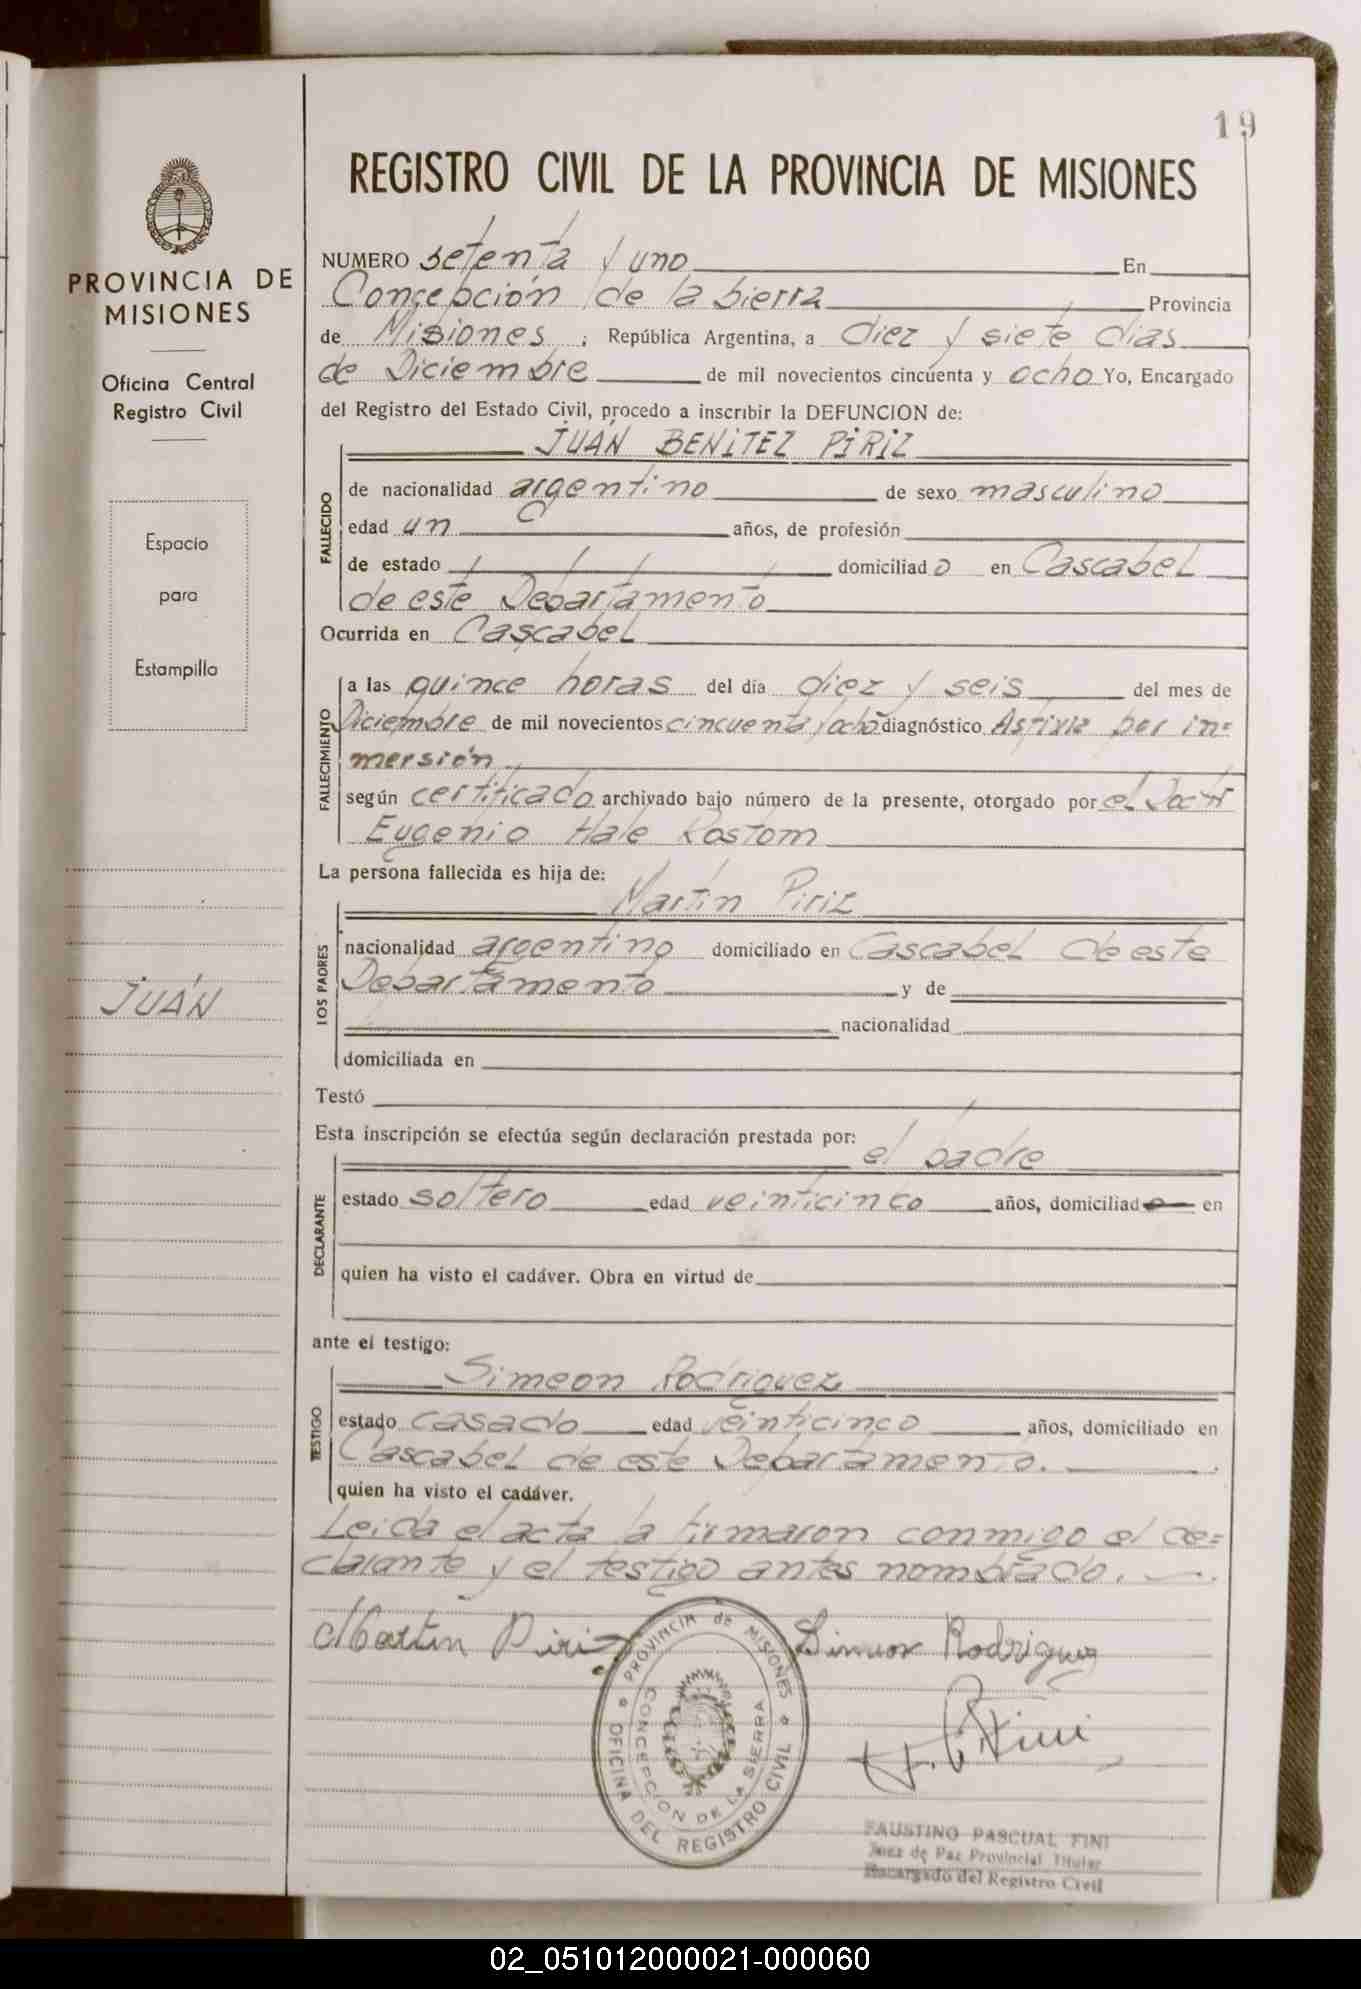 19
REGISTRO CIVIL DE LA PROVINCIA DE MISIONES
PROVINCIA DE
MISIONES
Oficina Central
Registro Civil
Espacio
para
Estampilla
JUÁN
NUMERO setenta y uno En
Concepción de la Sierra Provincia
de Misiones ; República Argentina, a diez y siete dias
de Diciembre de mil novecientos cincuenta y ocho Yo, Encargado
del Registro del Estado Civil, procedo a inscribir la DEFUNCION de:
JUÁN BENITEZ PIRIZ
FALLECIDO
de nacionalidad argentino de sexo masculino
edad un años, de profesión
de estado domiciliado en Cascabel
de este Departamento
Ocurrida en Cascabel
FALLECIMIENTO
a las quince horas del día diez y seis del mes de
Diciembre de mil novecientos cincuenta y ocho diagnóstico Asfixia por in=
mersión
según certificado archivado bajo número de la presente, otorgado por el Doctr
Eugenio Hale Rostom
La persona fallecida es hija de:
Martín Piriz
LOS PADRES
nacionalidad argentino domiciliado en Cascabel de este
Departamento y de
nacionalidad
domiciliada en
Testó
Esta inscripción se efectúa según declaración prestada por:
el padre
DECLARANTE
estado soltero edad veinticinco años, domiciliado en
quien ha visto el cadáver. Obra en virtud de
ante el testigo:
Simeon Rodriguez
TESTIGO
estado casado edad veinticinco años, domiciliado en
Cascabel de este Departamento.
quien ha visto el cadáver.
Leida el acta la firmaron conmigo el de=
clarante y el testigo antes nombrado.
Martin Piriz Simeon Rodriguez
PROVINCIA de MISIONES
OFICINA DEL REGISTRO CIVIL
CONCEPCION DE LA SIERRA
FAUSTINO PASCUAL FINI
Juez de Paz Provincial Titular
Encargado del Registro Civil
02_051012000021-000060